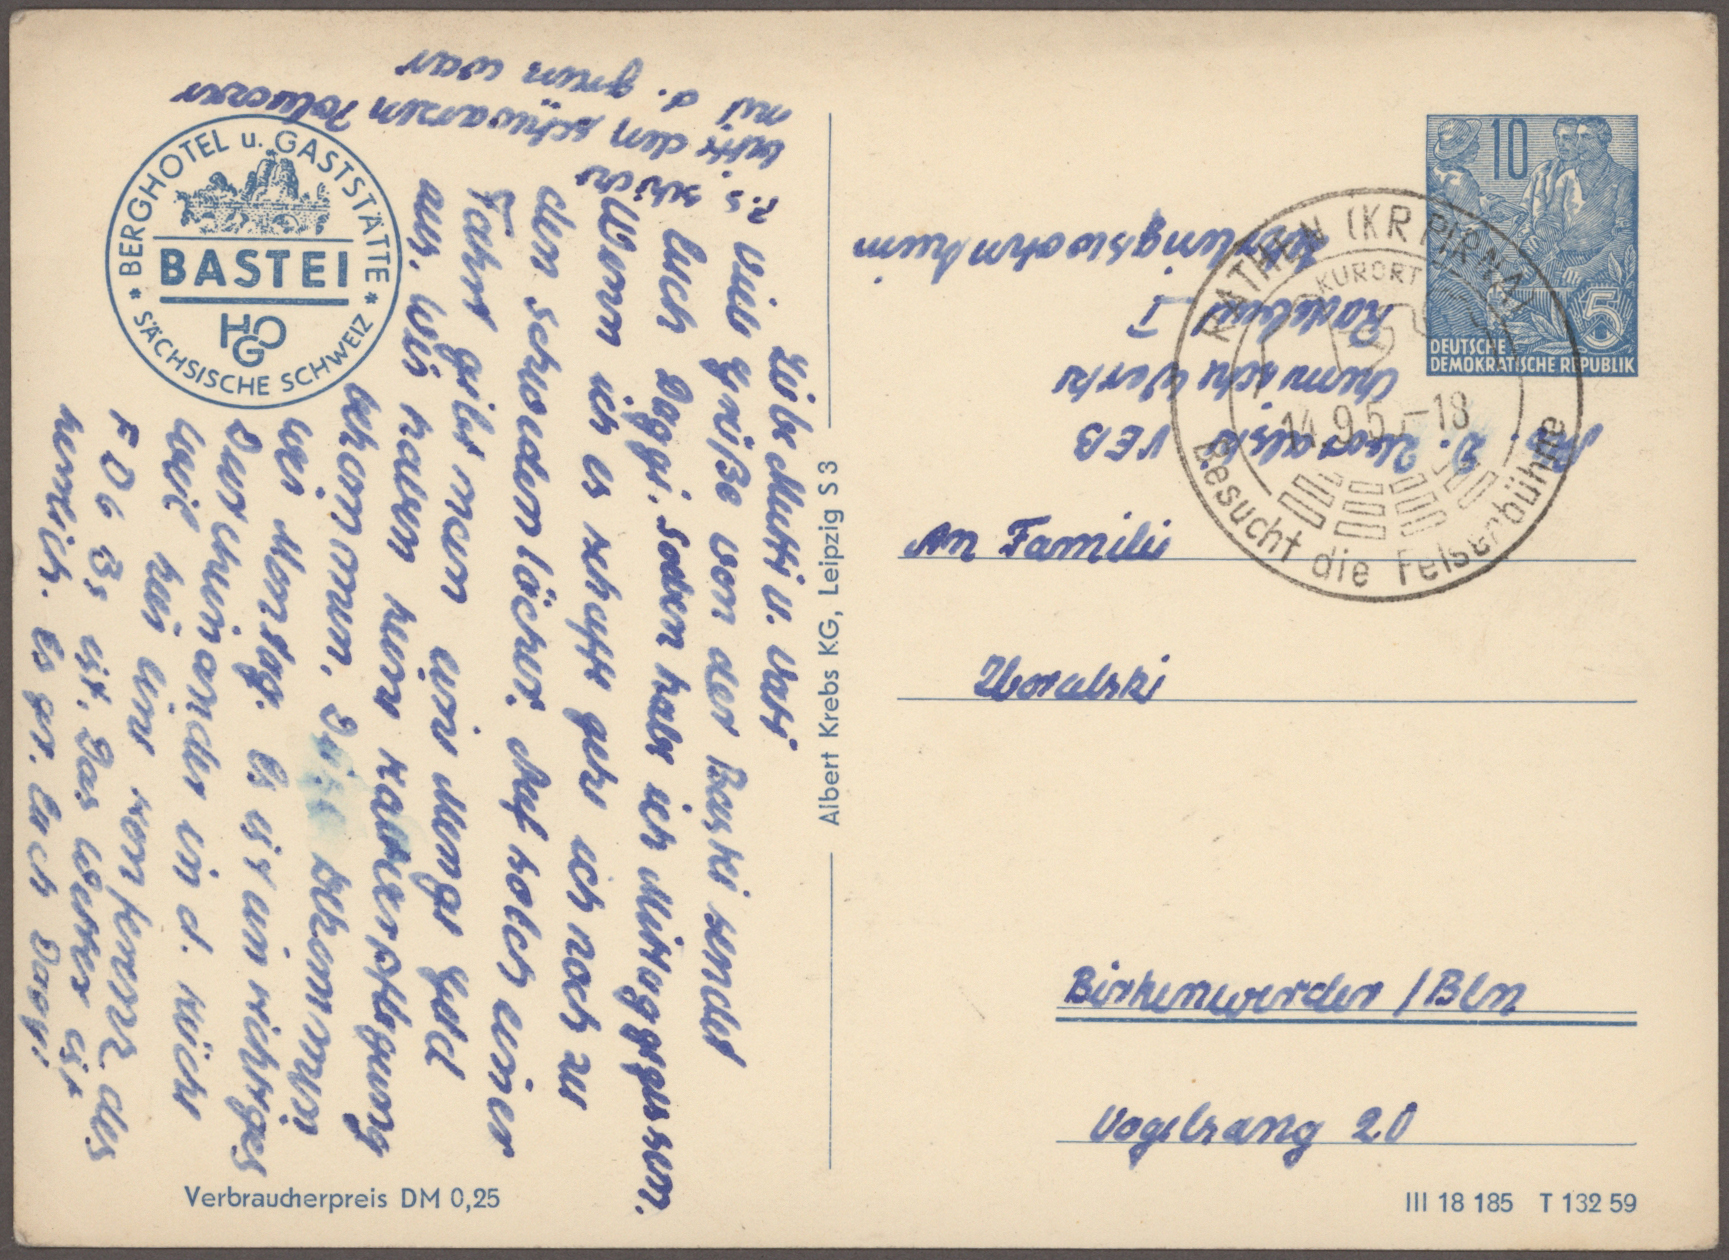 BERGHOTEL u. GASTSTÄTTE
BASTEI
HOG
* SÄCHSISCHE SCHWEIZ *
Liebe Mutti u. Vati
Viele Grüße von der Bastei sendet
Euch Daggi. Soeben habe ich Mittaggegessen.
Wenn ich es schaffe gehe ich noch zu
den Schwedenlöcher. Auf solch einer
Fahrt gibt man eine Menge Geld
aus. Wir haben keine
bekommen. Diese bekommen
wir Montag. Es ist ein richtiges
Durcheinander in d. Küche
weil hier eine Konferenz des
FDGB ist. Das Wetter ist
herrlich. Es gr. Euch Daggi
P.S. schickt
bitte den schwarzen Pullover
mit d. grün war
Verbraucherpreis DM 0,25
Albert Krebs KG, Leipzig S 3
10
5
DEUTSCHE
DEMOKRATISCHE REPUBLIK
RATHEN (KR PIRNA)
KURORT
14.9.5 -18
Besucht die Felsenbühne
Abs. D. VEB
Chemische Werke
Radebeul I
An Familie
Birkenwerder / Bln
Vogelsang 20
III 18 185 T 132 59